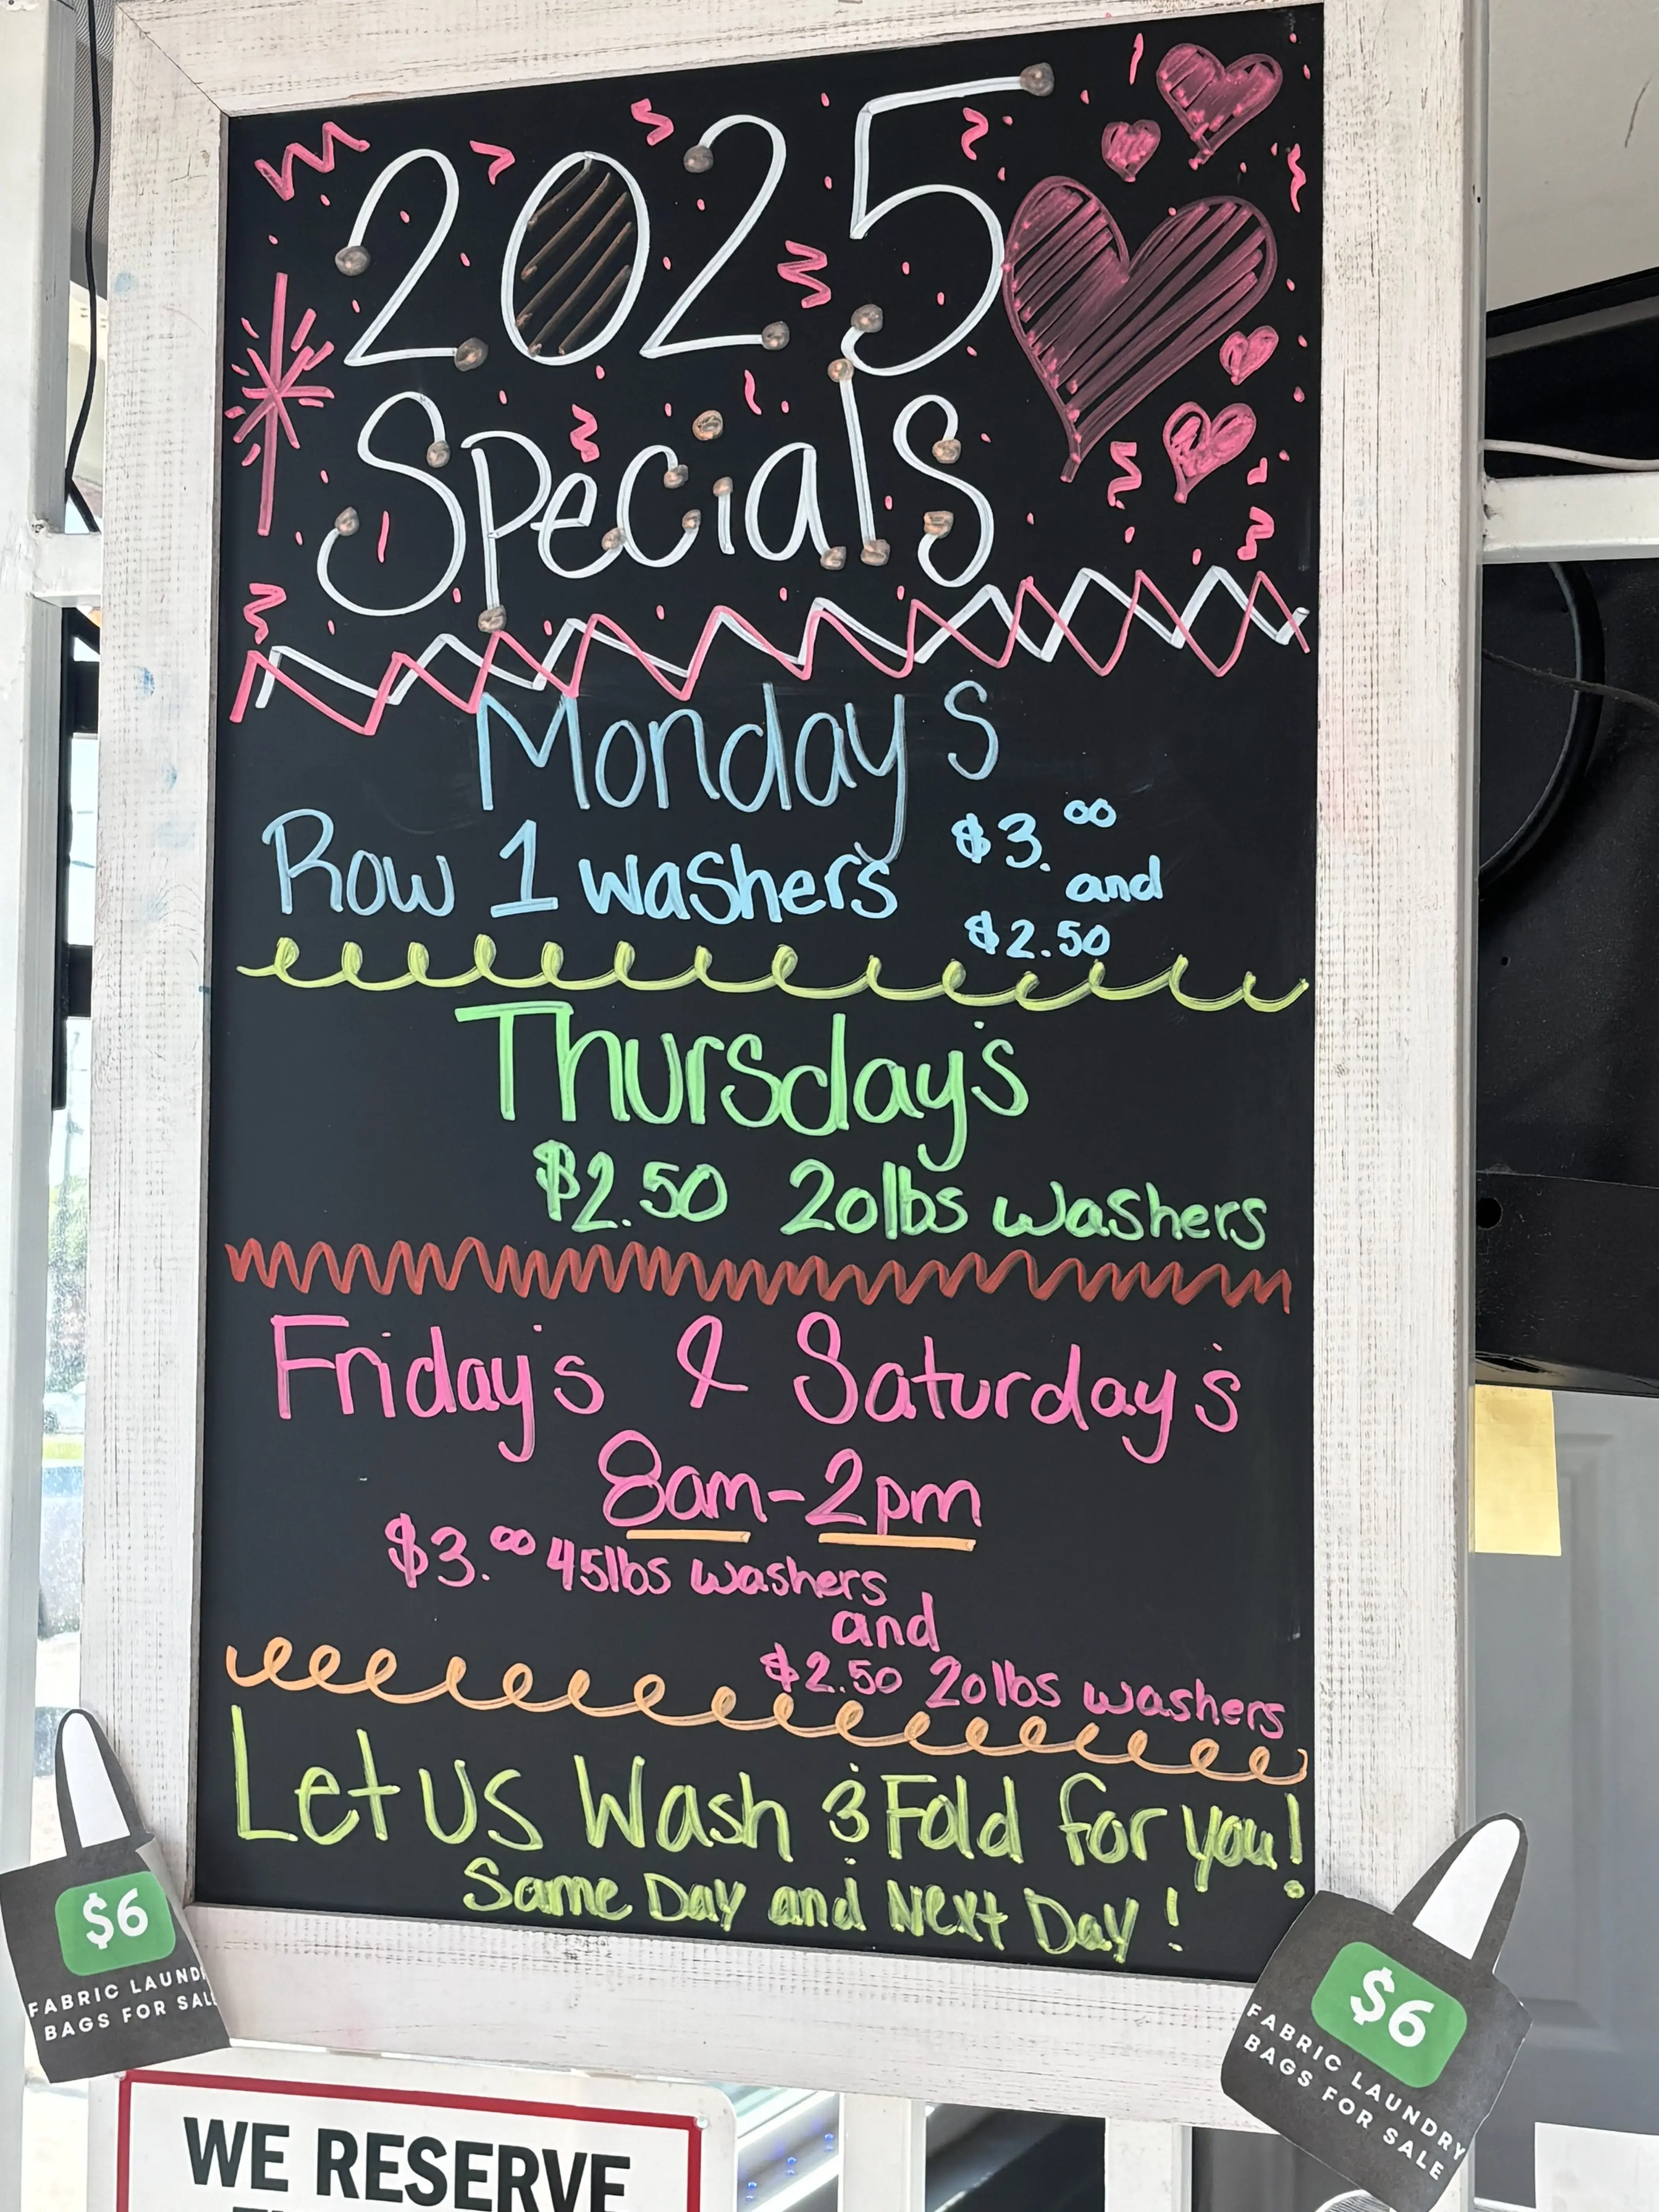 2025
Specials
Monday's
Row 1 washers $3.00 and
$2.50
Thursday's
$2.50 20lbs washers
Friday's & Saturday's
8am-2pm
$3.00 45lbs washers
and
$2.50 20lbs washers
Let us Wash & Fold for you!
Same Day and Next Day!
$6
FABRIC LAUND
BAGS FOR SAL
$6
FABRIC LAUNDRY
BAGS FOR SALE
WE RESERVE